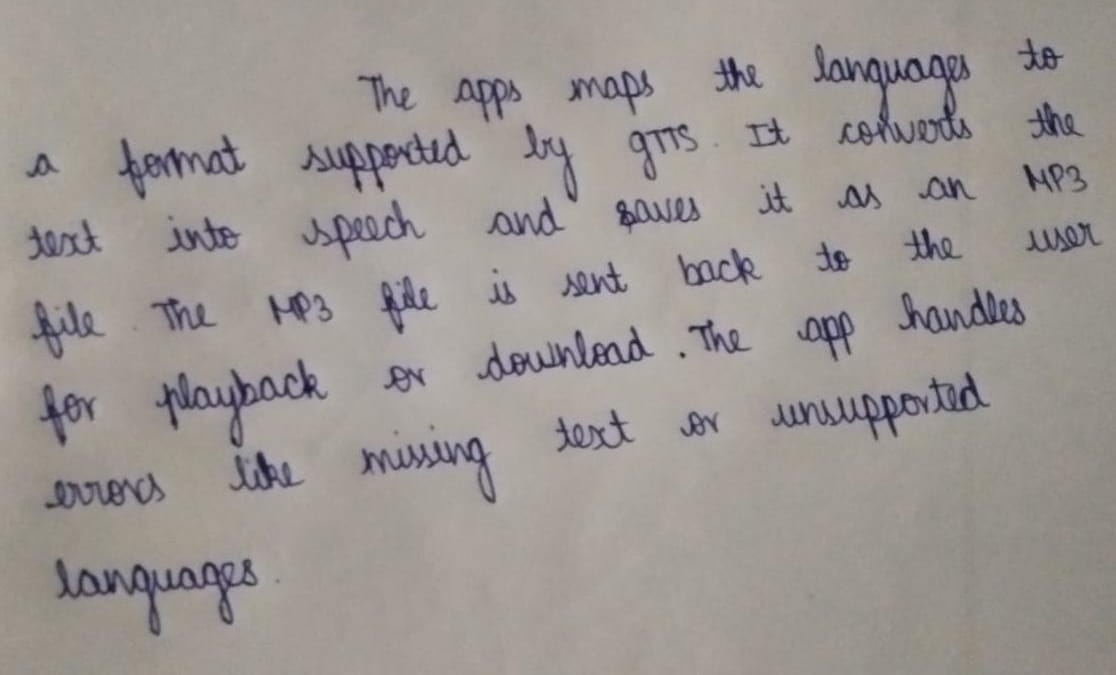 The apps maps the languages to
a format supported by gTTS. It converts the
text into speech and saves it as an MP3
file. The MP3 file is sent back to the user
for playback or download. The app handles
errors like missing text or unsupported
languages.